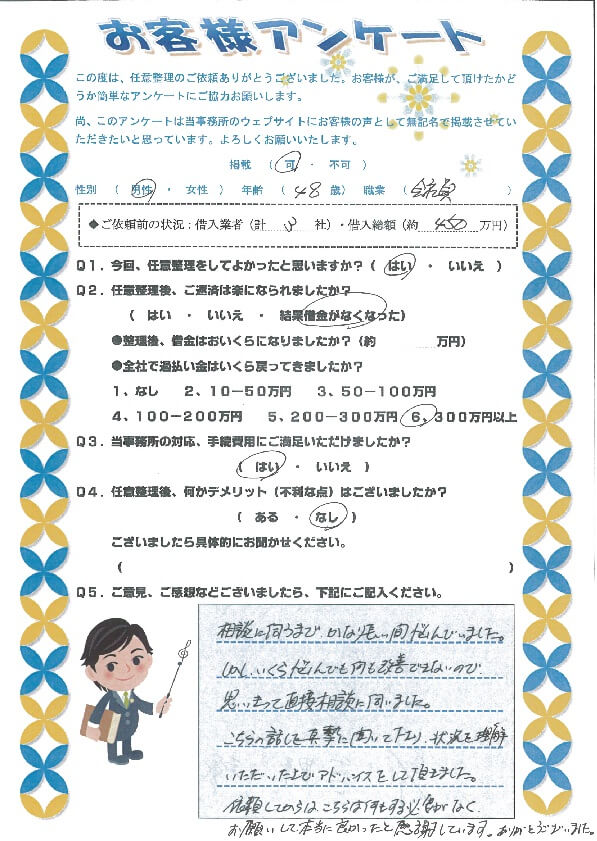 お客様アンケート
この度は、任意整理のご依頼ありがとうございました。お客様が、ご満足して頂けたかど
うか簡単なアンケートにご協力お願いします。
尚、このアンケートは当事務所のウェブサイトにお客様の声として無記名で掲載させてい
ただきたいと思っています。よろしくお願いいたします。
掲載 ( 可 ・ 不可 )
性別 ( 男性 ・ 女性 ) 年齢 ( 48 歳) 職業 ( 会社員 )
◆ご依頼前の状況:借入業者(計 3 社)・借入総額(約 450 万円)
Q1.今回、任意整理をしてよかったと思いますか?( はい ・ いいえ )
Q2.任意整理後、ご返済は楽になられましたか?
( はい ・ いいえ ・ 結果借金がなくなった)
●整理後、借金はおいくらになりましたか?(約 万円)
●全社で過払い金はいくら戻ってきましたか?
1、なし 2、10-50万円 3、50-100万円
4、100-200万円 5、200-300万円 6、300万円以上
Q3.当事務所の対応、手続費用にご満足いただけましたか?
( はい ・ いいえ )
Q4.任意整理後、何かデメリット(不利な点)はございましたか?
( ある ・ なし )
ございましたら具体的にお聞かせください。
( )
Q5.ご意見、ご感想などございましたら、下記にご記入ください。
相談に伺うまで かなり長い間悩んでいました。
しかし、いくら悩んでも何も改善できないので
思いきって直接相談に伺いました。
こちらの話しを真摯に聞いて下さり、状況を理解
いただいた上でアドバイスをして頂きました。
依頼してからは、こちらは何もする必要がなく、
お願いして本当に良かったと感謝しています。ありがとうございました。